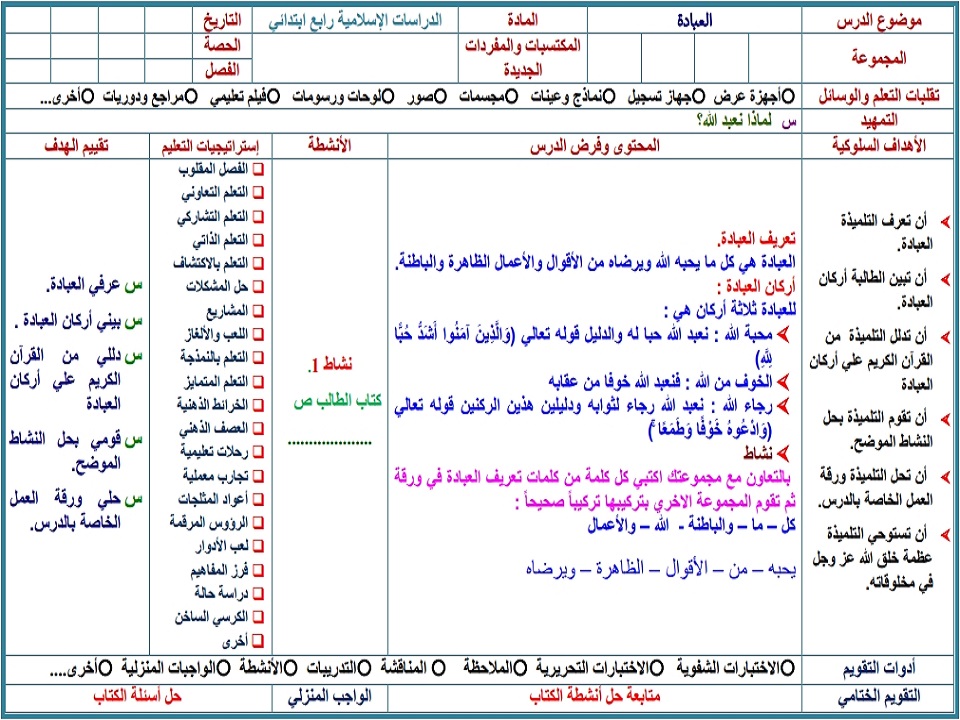 موضوع الدرس
العبادة
المادة
الدراسات الإسلامية رابع ابتدائي
التاريخ
المجموعة
المكتسبات والمفردات
الجديدة
الحصة
الفصل
تقلبات التعلم والوسائل
أجهزة عرض جهاز تسجيل نماذج وعينات مجسمات صور لوحات ورسومات فيلم تعليمي مراجع ودوريات أخرى...
التمهيد
س لماذا نعبد الله؟
الأهداف السلوكية
المحتوى وفرض الدرس
الأنشطة
إستراتيجيات التعليم
تقييم الهدف
أن تعرف التلميذة
العبادة.
أن تبين الطالبة أركان
العبادة.
أن تدلل التلميذة من
القرآن الكريم علي أركان
العبادة
أن تقوم التلميذة بحل
النشاط الموضح.
أن تحل التلميذة ورقة
العمل الخاصة بالدرس.
أن تستوحي التلميذة
عظمة خلق الله عز وجل
في مخلوقاته.
تعريف العبادة.
العبادة هي كل ما يحبه الله ويرضاه من الأقوال والأعمال الظاهرة والباطنة.
أركان العبادة :
للعبادة ثلاثة أركان هي :
محبة الله : نعبد الله حبا له والدليل قوله تعالي (وَالَّذِينَ آمَنُوا أَشَدُّ حُبًّا
لِلَّهِ)
الخوف من الله : فنعبد الله خوفا من عقابه
رجاء الله : نعبد الله رجاء لثوابه ودليلين هذين الركنين قوله تعالي
(وَادْعُوهُ خَوْفًا وَطَمَعًا ۚ)
نشاط
بالتعاون مع مجموعتك اكتبي كل كلمة من كلمات تعريف العبادة في ورقة
ثم تقوم المجموعة الاخري بتركيبها تركيباً صحيحاً :
كل – ما – والباطنة - الله – والأعمال
يحبه – من – الأقوال – الظاهرة – ويرضاه
نشاط 1.
كتاب الطالب ص
....................
الفصل المقلوب
التعلم التعاوني
التعلم التشاركي
التعلم الذاتي
التعلم بالاكتشاف
حل المشكلات
المشاريع
اللعب والألغاز
التعلم بالنمذجة
التعلم المتمايز
الخرائط الذهنية
العصف الذهني
رحلات تعليمية
تجارب معملية
أعواد المثلجات
الرؤوس المرقمة
لعب الأدوار
فرز المفاهيم
دراسة حالة
الكرسي الساخن
أخرى
س عرفي العبادة.
س بيني أركان العبادة .
س دللي من القرآن
الكريم علي أركان
العبادة
س قومي بحل النشاط
الموضح.
س حلي ورقة العمل
الخاصة بالدرس.
أدوات التقويم
الاختبارات الشفوية الاختبارات التحريرية الملاحظة المناقشة التدريبات الأنشطة الواجبات المنزلية أخرى....
التقويم الختامي
متابعة حل أنشطة الكتاب
الواجب المنزلي
حل أسئلة الكتاب